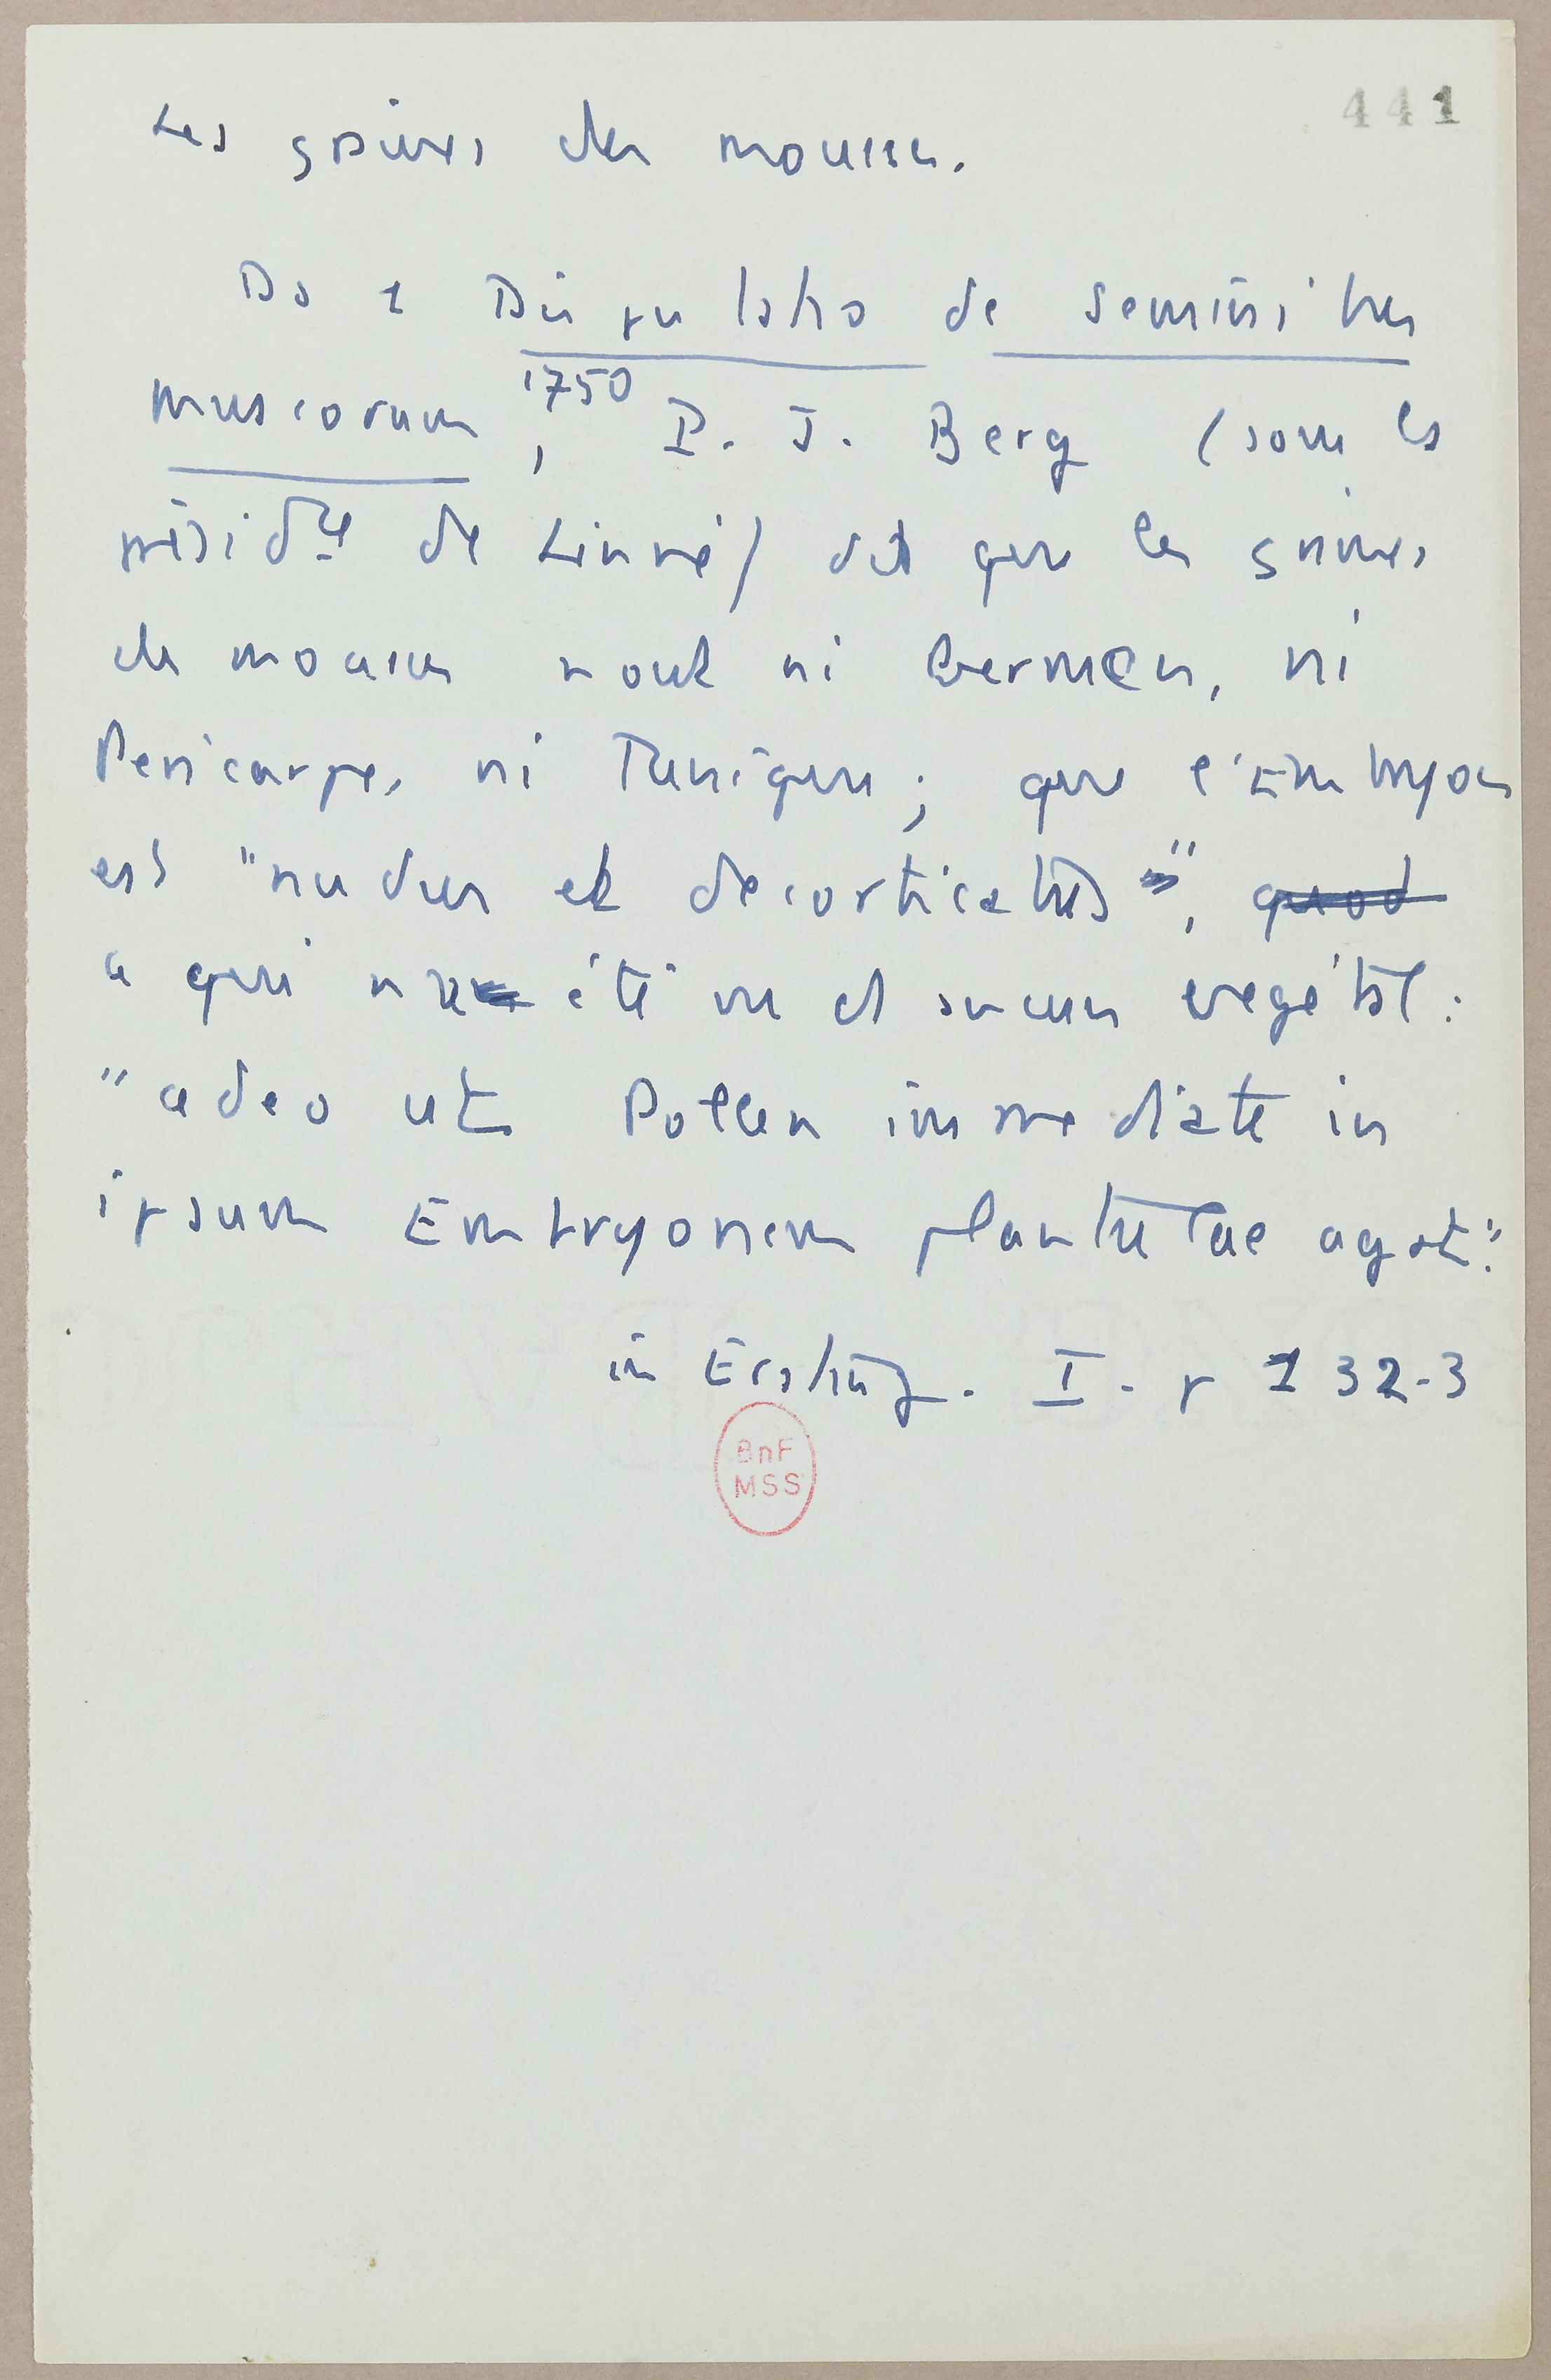 441
Les graines des mousses.
Ds 1 Disputatio de seminibus
muscorum, 1750 P. J. Berg (sous la
présidce de Linné) dit que les graines
de mousses n'ont ni Germen, ni
Pericarpe, ni Tunique ; que l'Embryon
est "nudus et decorticatus", quod
ce qui n'a été vu d aucun végétal :
"adeo ut Pollen immediate in
ipsum Embryonem plantulae agat".
in I. p 132-3
BnF
MSS